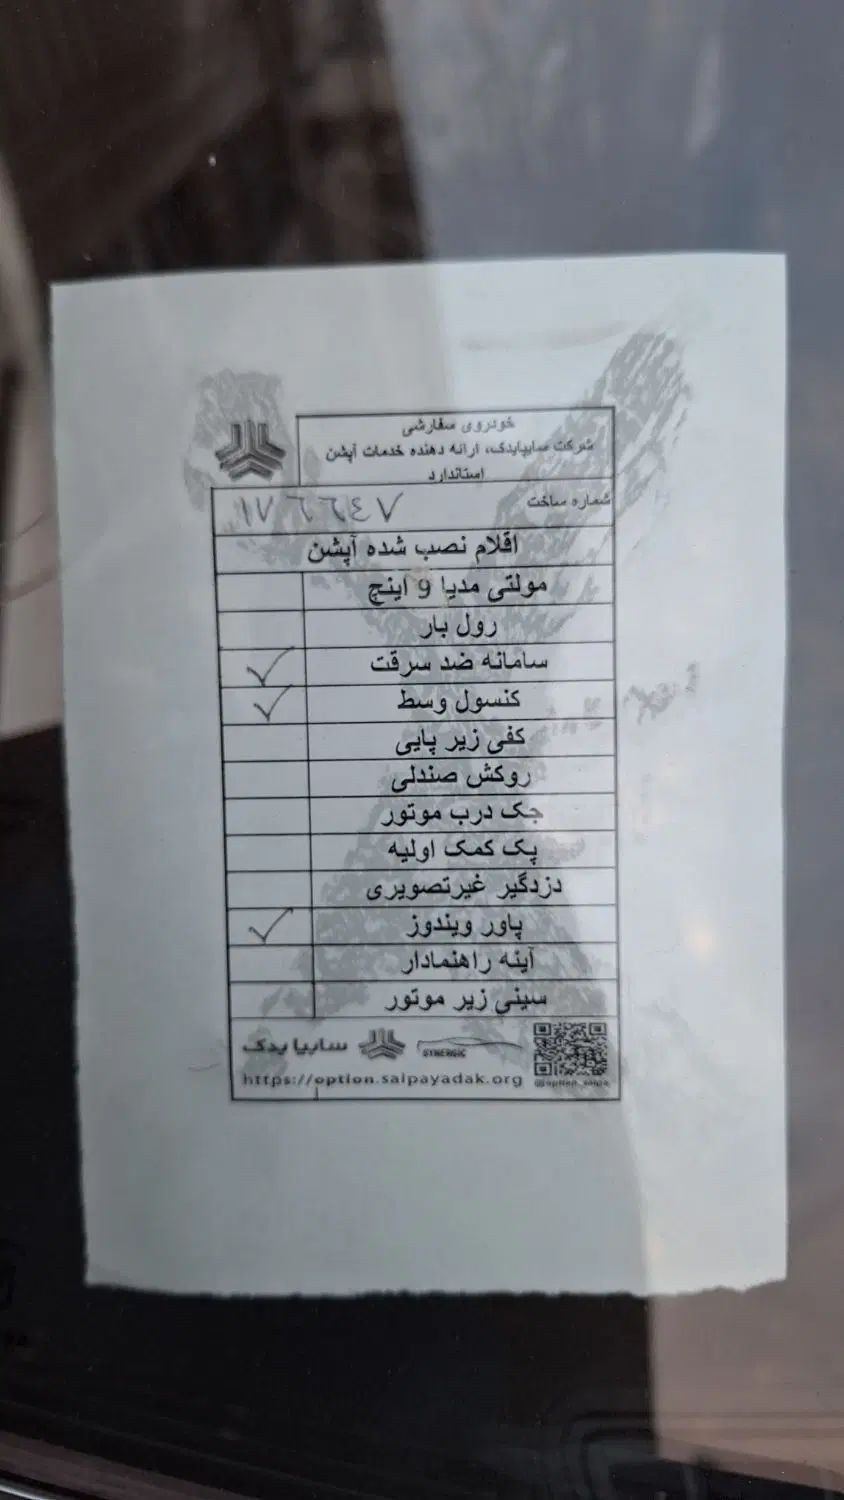 خودروی سفارشی
شرکت سایپایدک، ارائه دهنده خدمات آپشن
استاندارد
شماره ساخت
اقلام نصب شده آپشن
مولتی مدیا 9 اینچ
رول بار
سامانه ضد سرقت ✓
کنسول وسط ✓
کفی زیر پایی
روکش صندلی
جک درب موتور
پک کمک اولیه
دزدگیر غیرتصویری
پاور ویندوز ✓
آینه راهنمادار
سینی زیر موتور
سایپا یدک
SYNERGIC
https://option.saipayadak.org
@option_saipa